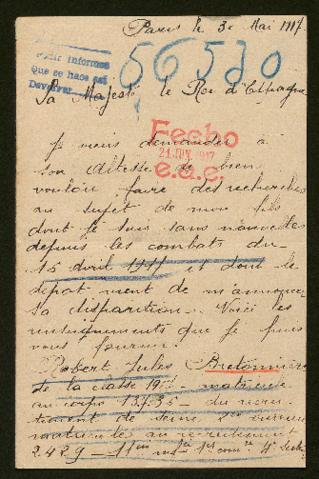 Paris le 30 Mai 1917
Pedir informes
Que se hace así
Devolver
56530
Sa Majesté le Roi d'Espagne
Fecho
21 JUN. 1917
e.a.e.
Je viens demander à
son Altesse de bien
vouloir faire des recherches
au sujet de mon fils
dont je suis sans nouvelles
depuis les combats du
16 avril 1917 et dont le
dépot vient de m'annoncer
sa disparition. Voici les
renseignements que je puis
vous fournir.
Robert Jules Bretonnière
de la classe 19 matricule
au corps 13735 du recru
tement de Seine 2e bureau
matricule au recrutement
2429 - 11em 1re com